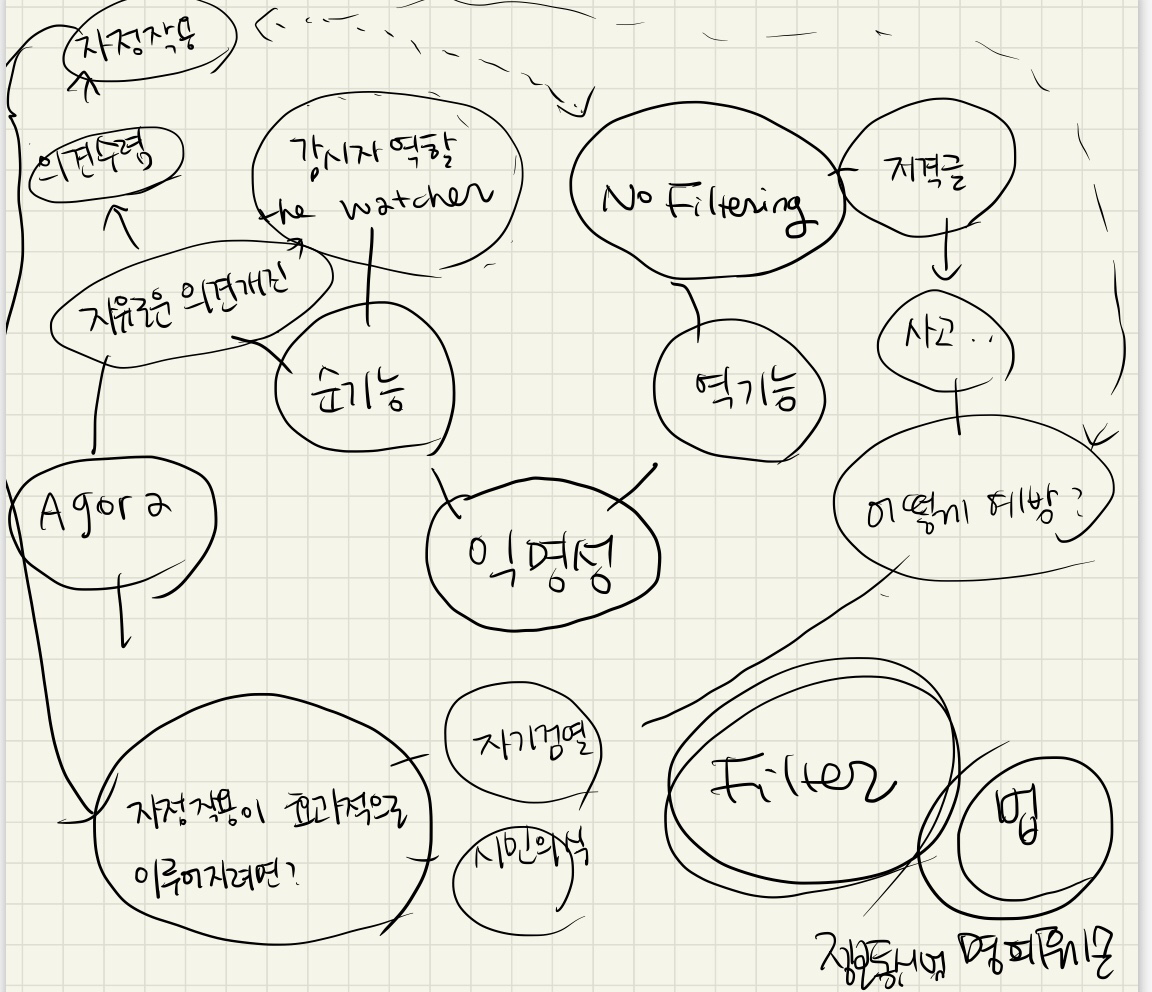 자정작용
의견수렴
감시자 역할
the watcher
No Filtering
저격글
자유로운 의견개진
순기능
역기능
사고..
Agora
익명성
어떻게 예방?
자정작용이 효과적으로
이루어지려면?
자기검열
시민의식
Filter
법